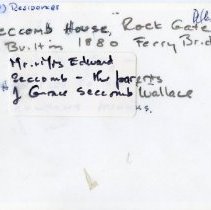 Residences
eccomb House, "Rock Gate
Built in 1880 Ferry Brid
Mr. & Mrs Edward
Seccomb - the parents
of Grace Seccomb Wallace